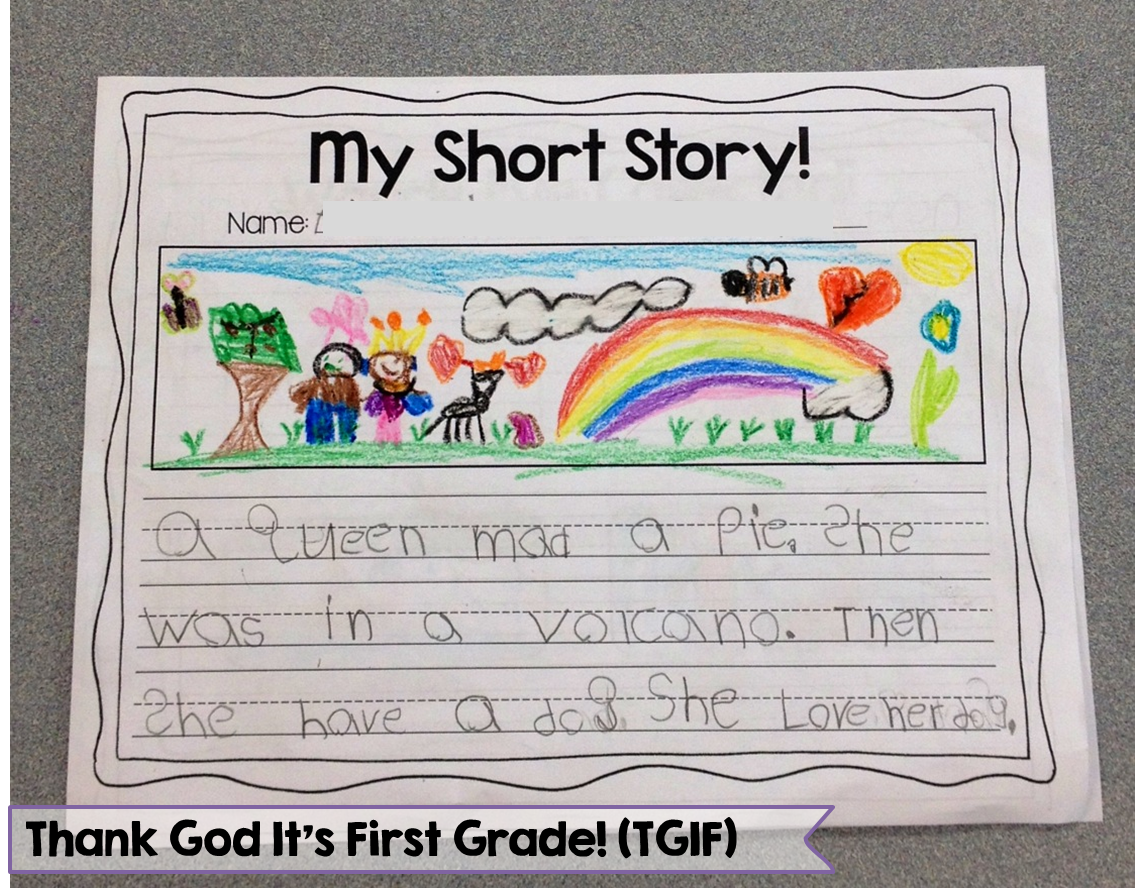 My Short Story!
Name:
A Queen mad a Pie. She
was in a volcano. Then
She have a dog. She Love her dog.
Thank God It's First Grade! (TGIF)